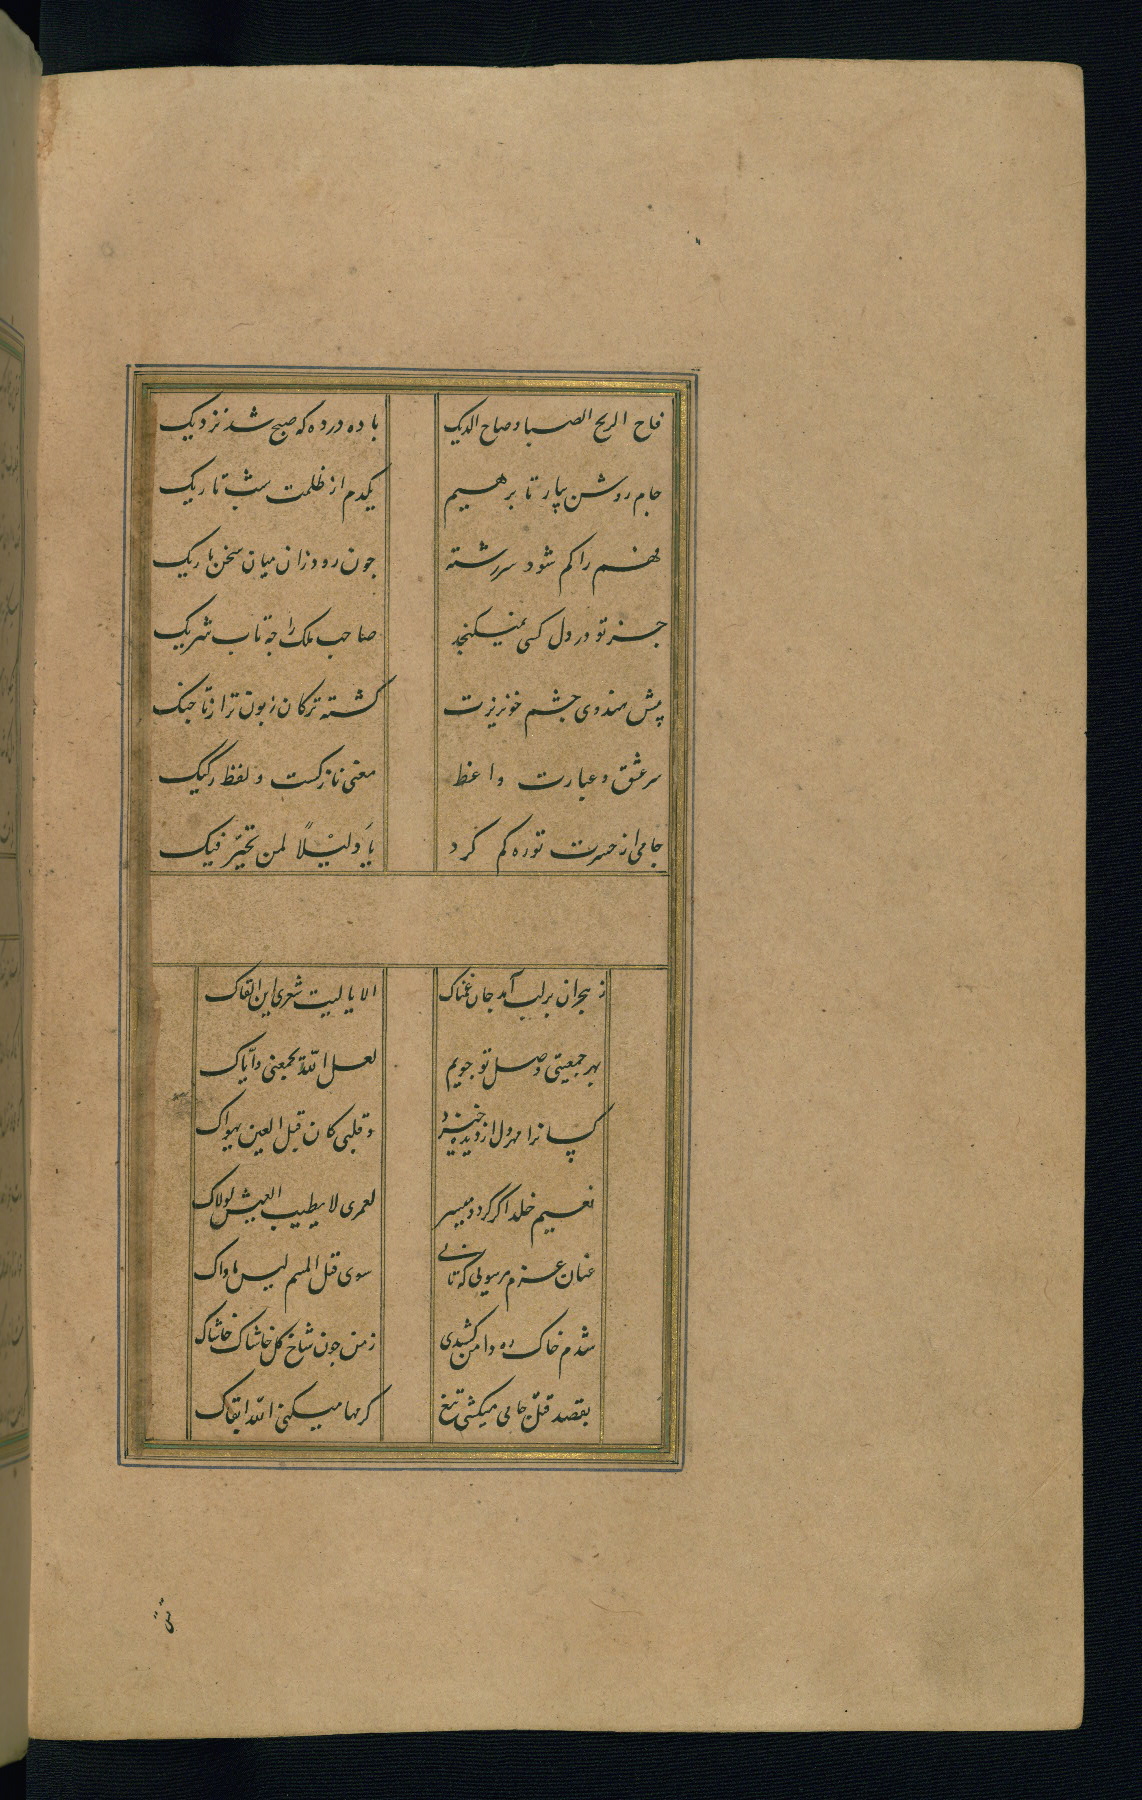 فاح الریح الصبا و صاح الدیک باده درده که صبح شد نزدیک
جام روشن بیار تا برهیم یکدم از ظلمت شب تاریک
فهم را کم شود سررشته جون رود زان میان سخن باریک
جز تو در دل کسی نمیکنجد صاحب ملک را جه تاب شریک
پیش هندوی جشم خونریزت کشته ترکان زبون تر از تاجیک
سر عشق و عبارت واعظ معنی نازکست و لفظ رکیک
جامی از حسرت تو ره کم کرد یا دلیلًا لمن تحیّر فیک
ز هجران بر لب آمد جان غمناک الا یا لیت شعری این القاک
بهر جمعیتی وصل تو جویم لعل اللّه یجمعنی و ایّاک
کسانرا مهر دل از دیده خیزد و قلبی کان قبل العین یهواک
نعیم خلد اکر کردد میسر لعمری لا یطیب العیش لولاک
عنان عزم هر سویی که تابی سوی قتل المتیم لیس ماواک
شدم خاک ره و دامن کشیدی ز من جون شاخ کل خاشاک خاشاک
بقصد قتل جامی میکشی تیغ کرمها میکنی اللّه ابقاک